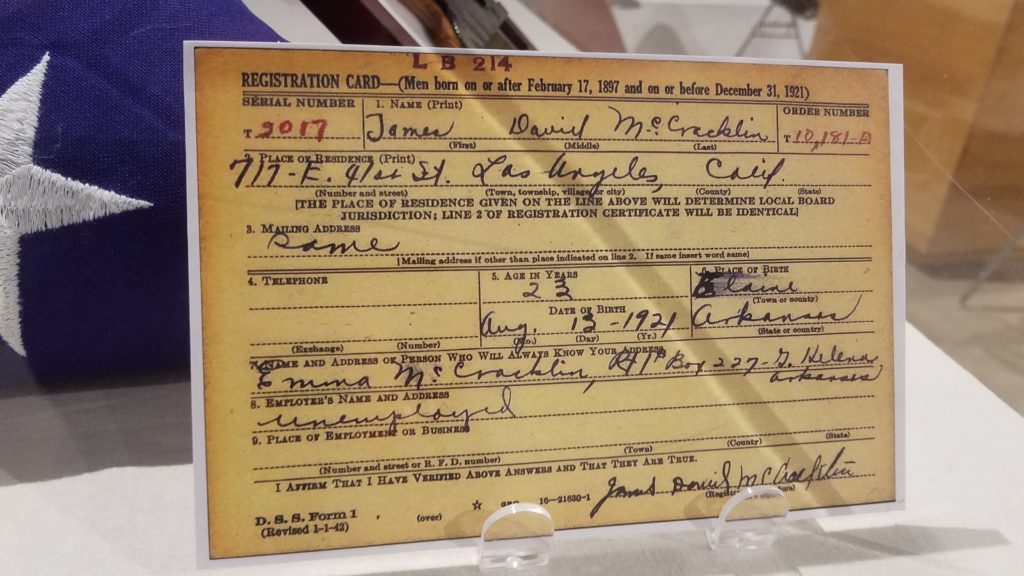 L B 214
REGISTRATION CARD—(Men born on or after February 17, 1897 and on or before December 31, 1921)
SERIAL NUMBER 1. NAME (Print) ORDER NUMBER
T 2017 James David McCracklin T 10,181-A
(First) (Middle) (Last)
2. PLACE OF RESIDENCE (Print)
717-E. 41st St. Los Angeles, Calif.
(Number and street) (Town, township, village, or city) (County) (State)
[THE PLACE OF RESIDENCE GIVEN ON THE LINE ABOVE WILL DETERMINE LOCAL BOARD
JURISDICTION; LINE 2 OF REGISTRATION CERTIFICATE WILL BE IDENTICAL]
3. MAILING ADDRESS
Same
[Mailing address if other than place indicated on line 2. If same insert word same]
4. TELEPHONE 5. AGE IN YEARS 6. PLACE OF BIRTH
23 Elaine
(Town or county)
DATE OF BIRTH
Aug. 13-1921 Arkansas
(Exchange) (Number) (Mo.) (Day) (Yr.) (State or country)
7. NAME AND ADDRESS OF PERSON WHO WILL ALWAYS KNOW YOUR ADDRESS
Emma McCracklin, Box 227- Helena
Arkansas
8. EMPLOYER'S NAME AND ADDRESS
unemployed
9. PLACE OF EMPLOYMENT OR BUSINESS
(Number and street or R. F. D. number) (Town) (County) (State)
I AFFIRM THAT I HAVE VERIFIED ABOVE ANSWERS AND THAT THEY ARE TRUE.
James David McCracklin
D. S. S. Form 1 (over) GPO 16—21630-1 (Registrant's signature)
(Revised 1-1-42)